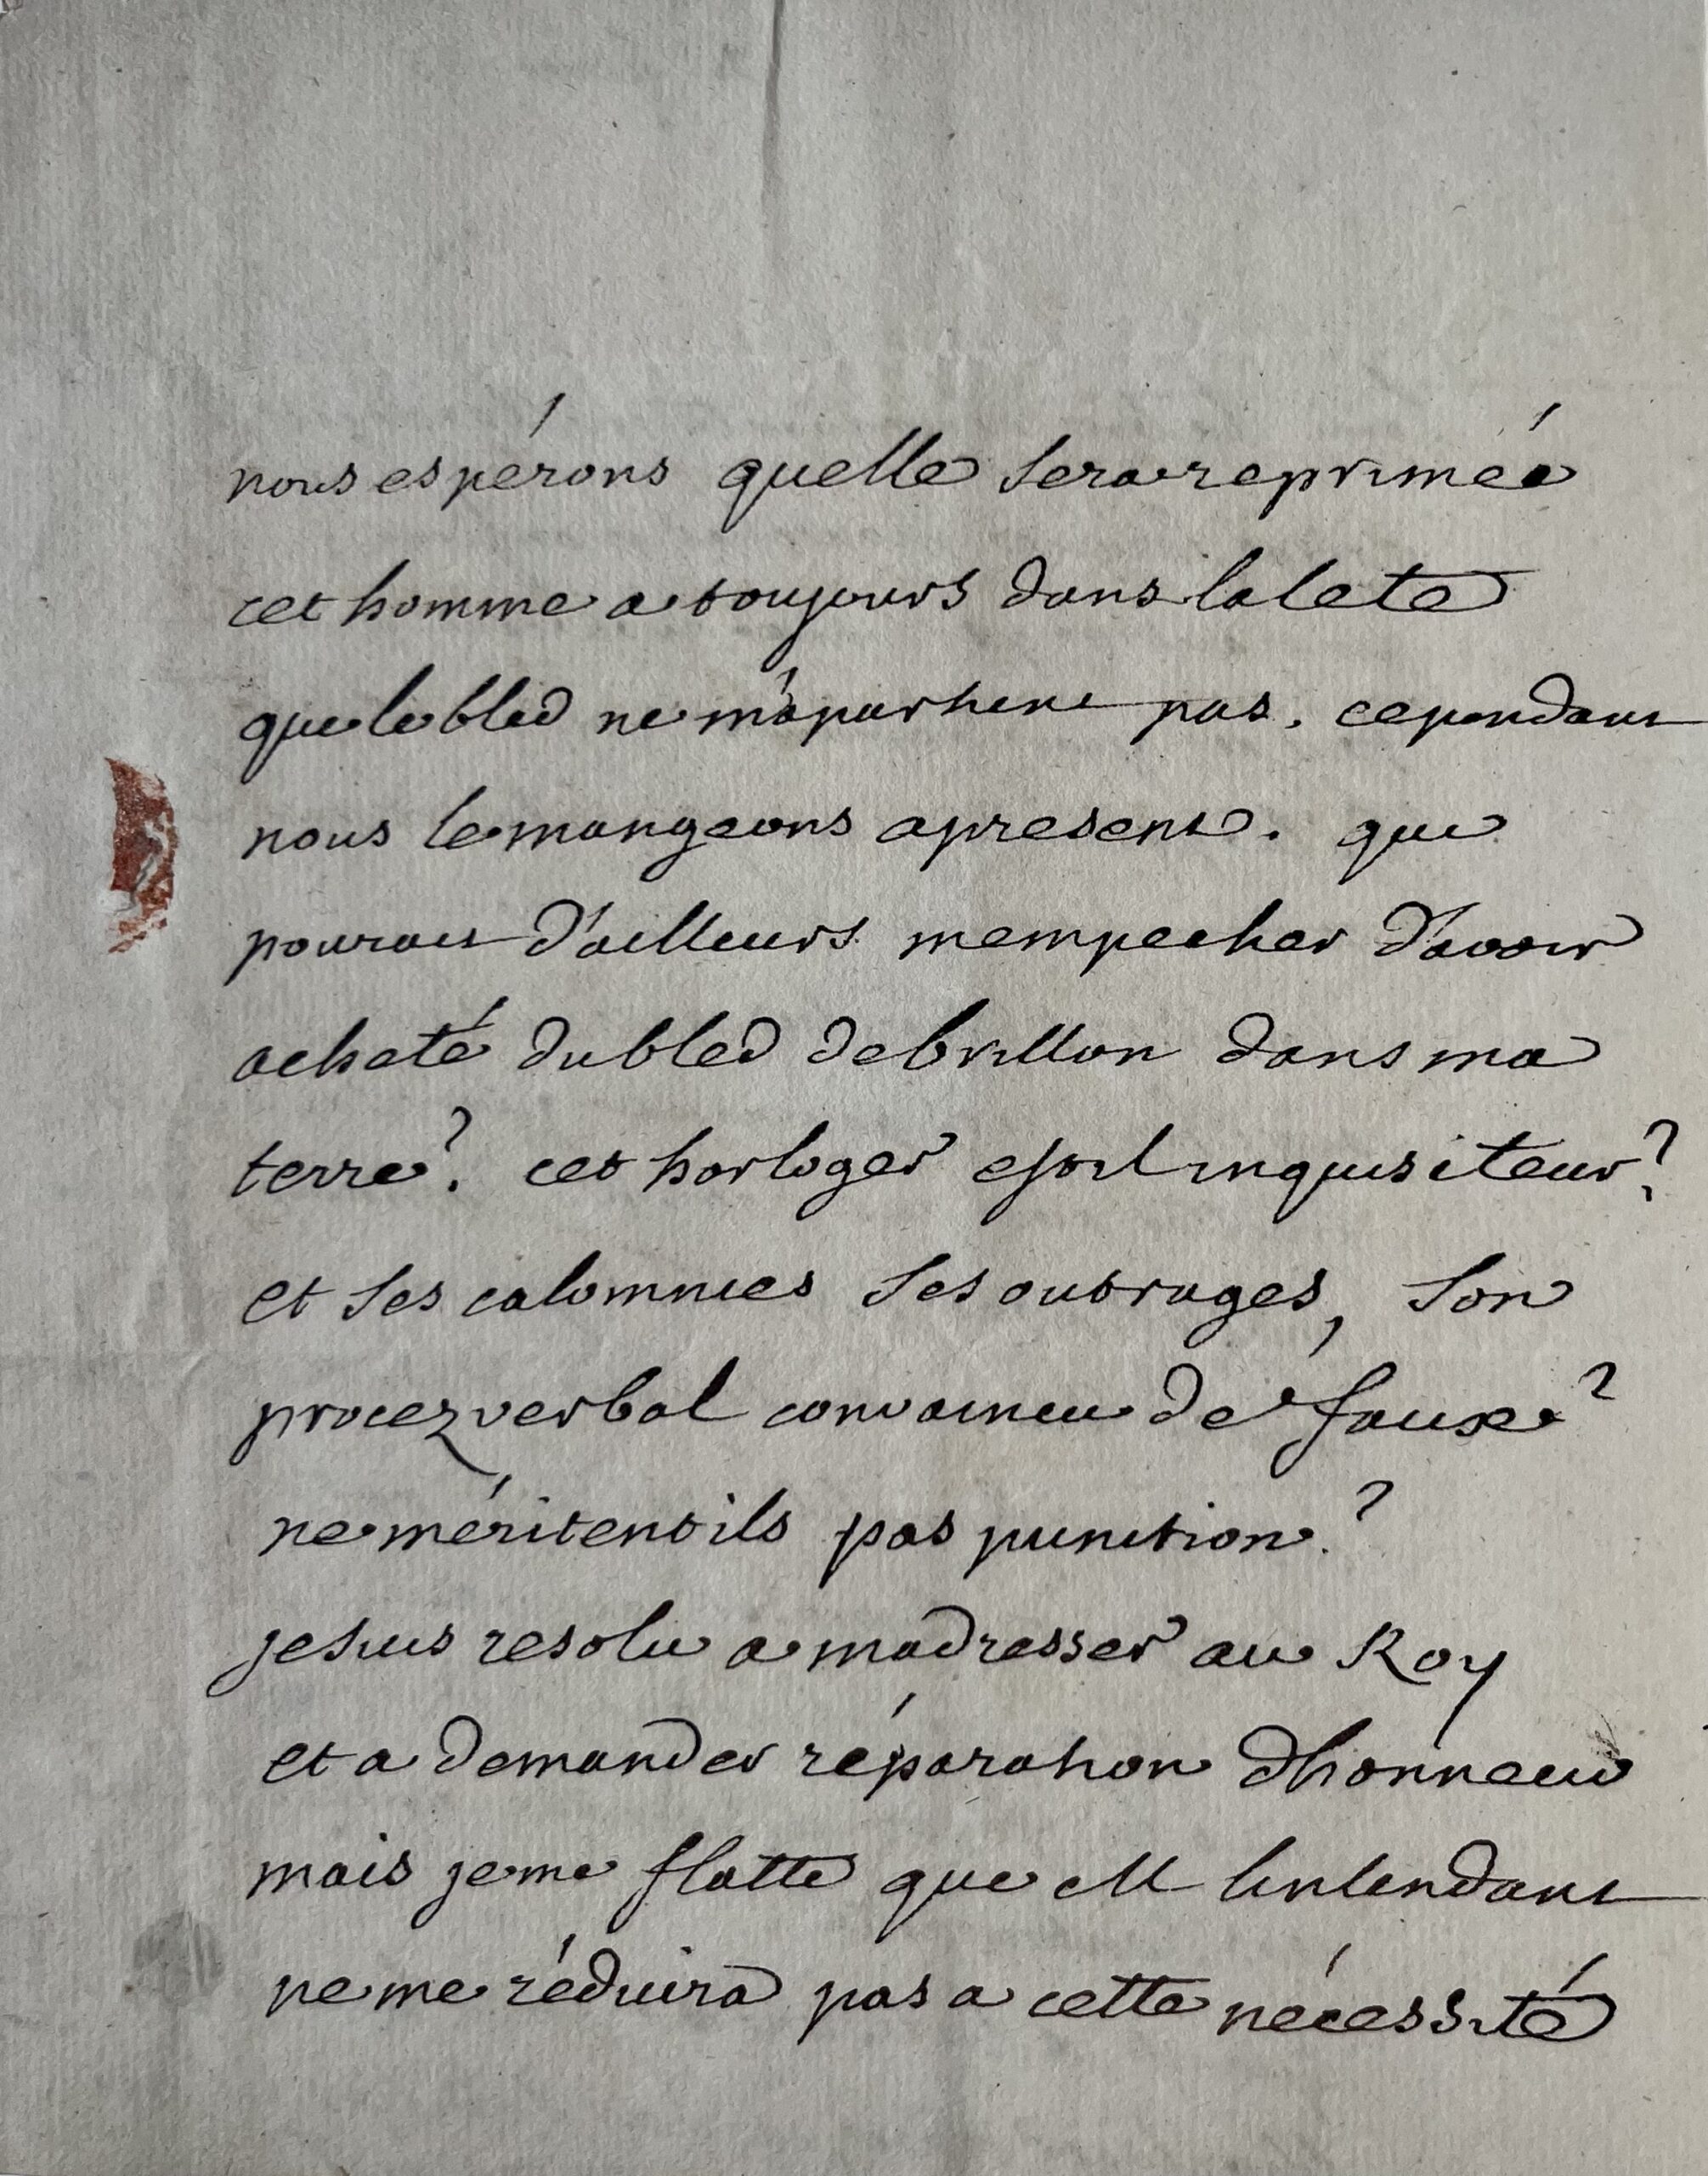 nous espérons quelle sera reprimée
cet homme a toujours dans la tete
que le bled ne m'apartient pas. cependant
nous le mangeons apresent. qui
pourait d'ailleurs mempecher d'avoir
acheté du bled de brillon dans ma
terre? cet horloger est il inquisiteur?
et ses calomnies ses outrages, son
procez verbal convaincu de faux?
ne méritent ils pas punition?
je suis resolu a madresser au Roy
et a demander réparation dhonneur
mais je me flatte que M lintendant
ne me réduira pas a cette nécessité